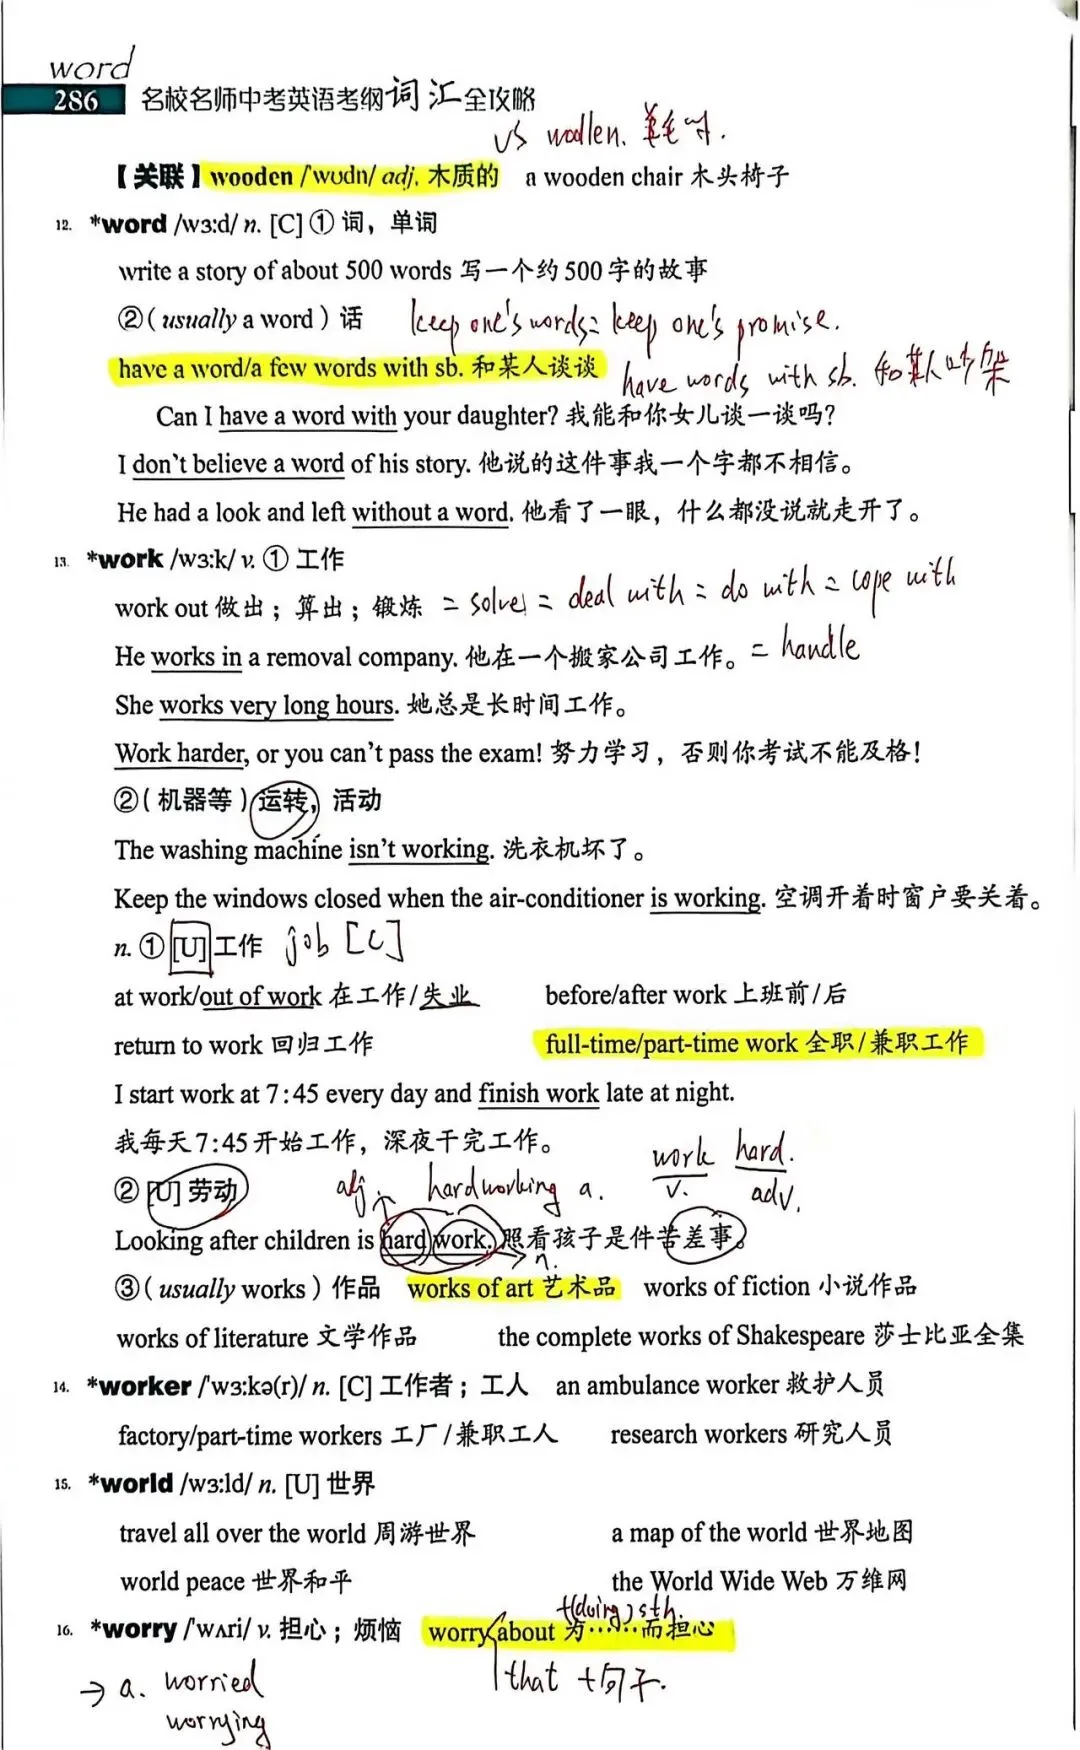 word
286 名校名师中考英语考纲词汇全攻略
vs woollen. 羊毛的.
【关联】wooden /ˈwʊdn/ adj. 木质的 a wooden chair 木头椅子
12. *word /wɜ:d/ n. [C] ① 词，单词
write a story of about 500 words 写一个约500字的故事
②( usually a word ) 话 keep one's words = keep one's promise.
have a word/a few words with sb. 和某人谈谈 have words with sb. 和某人吵架
Can I have a word with your daughter? 我能和你女儿谈一谈吗？
I don't believe a word of his story. 他说的这件事我一个字都不相信。
He had a look and left without a word. 他看了一眼，什么都没说就走开了。
13. *work /wɜ:k/ v. ① 工作
work out 做出；算出；锻炼 = solve = deal with = do with = cope with
He works in a removal company. 他在一个搬家公司工作。 = handle
She works very long hours. 她总是长时间工作。
Work harder, or you can't pass the exam! 努力学习，否则你考试不能及格！
②( 机器等 ) 运转，活动
The washing machine isn't working. 洗衣机坏了。
Keep the windows closed when the air-conditioner is working. 空调开着时窗户要关着。
n. ① [U] 工作 job [C]
at work/out of work 在工作/失业 before/after work 上班前/后
return to work 回归工作 full-time/part-time work 全职/兼职工作
I start work at 7:45 every day and finish work late at night.
我每天7:45开始工作，深夜干完工作。 work hard.
② [U] 劳动 adj. hardworking a. v. adv.
Looking after children is hard work. 照看孩子是件苦差事。
n.
③( usually works ) 作品 works of art 艺术品 works of fiction 小说作品
works of literature 文学作品 the complete works of Shakespeare 莎士比亚全集
14. *worker /ˈwɜ:kə(r)/ n. [C] 工作者；工人 an ambulance worker 救护人员
factory/part-time workers 工厂/兼职工人 research workers 研究人员
15. *world /wɜ:ld/ n. [U] 世界
travel all over the world 周游世界 a map of the world 世界地图
world peace 世界和平 the World Wide Web 万维网
+(doing) sth.
16. *worry /ˈwʌri/ v. 担心；烦恼 worry about 为……而担心
→ a. worried that +句子.
worrying